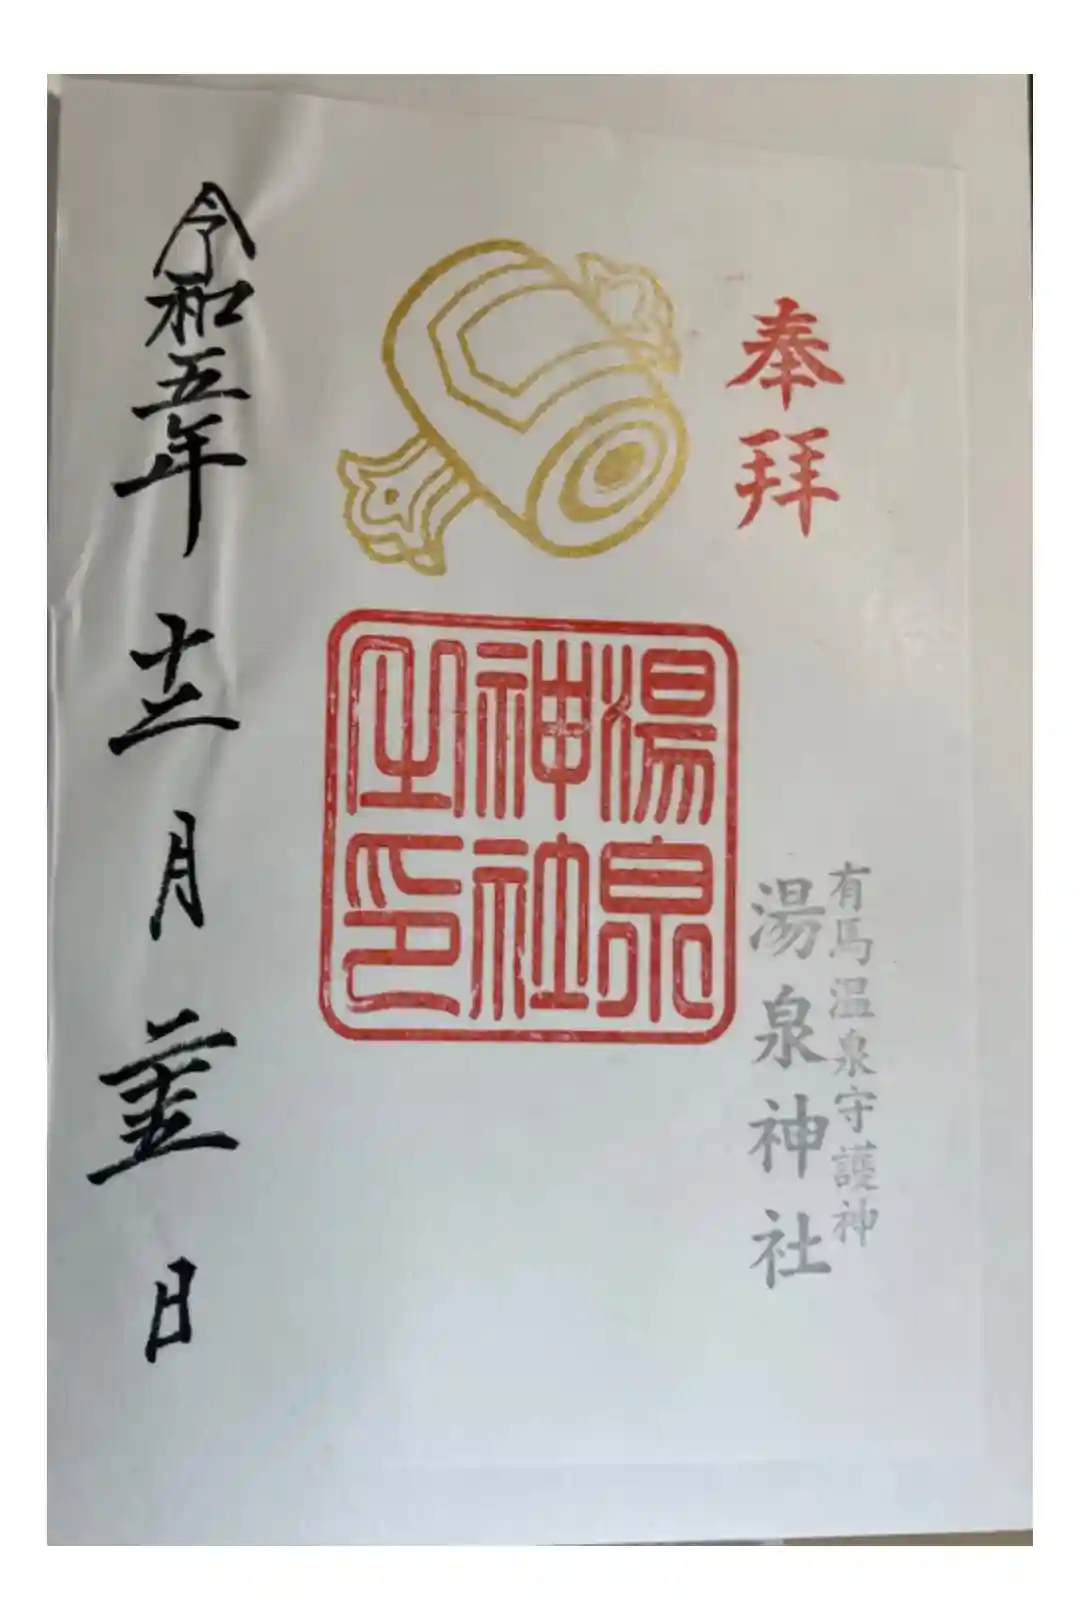 奉拝
有馬温泉守護神
湯泉神社
湯泉
神社
之印
令和五年十二月二十五日